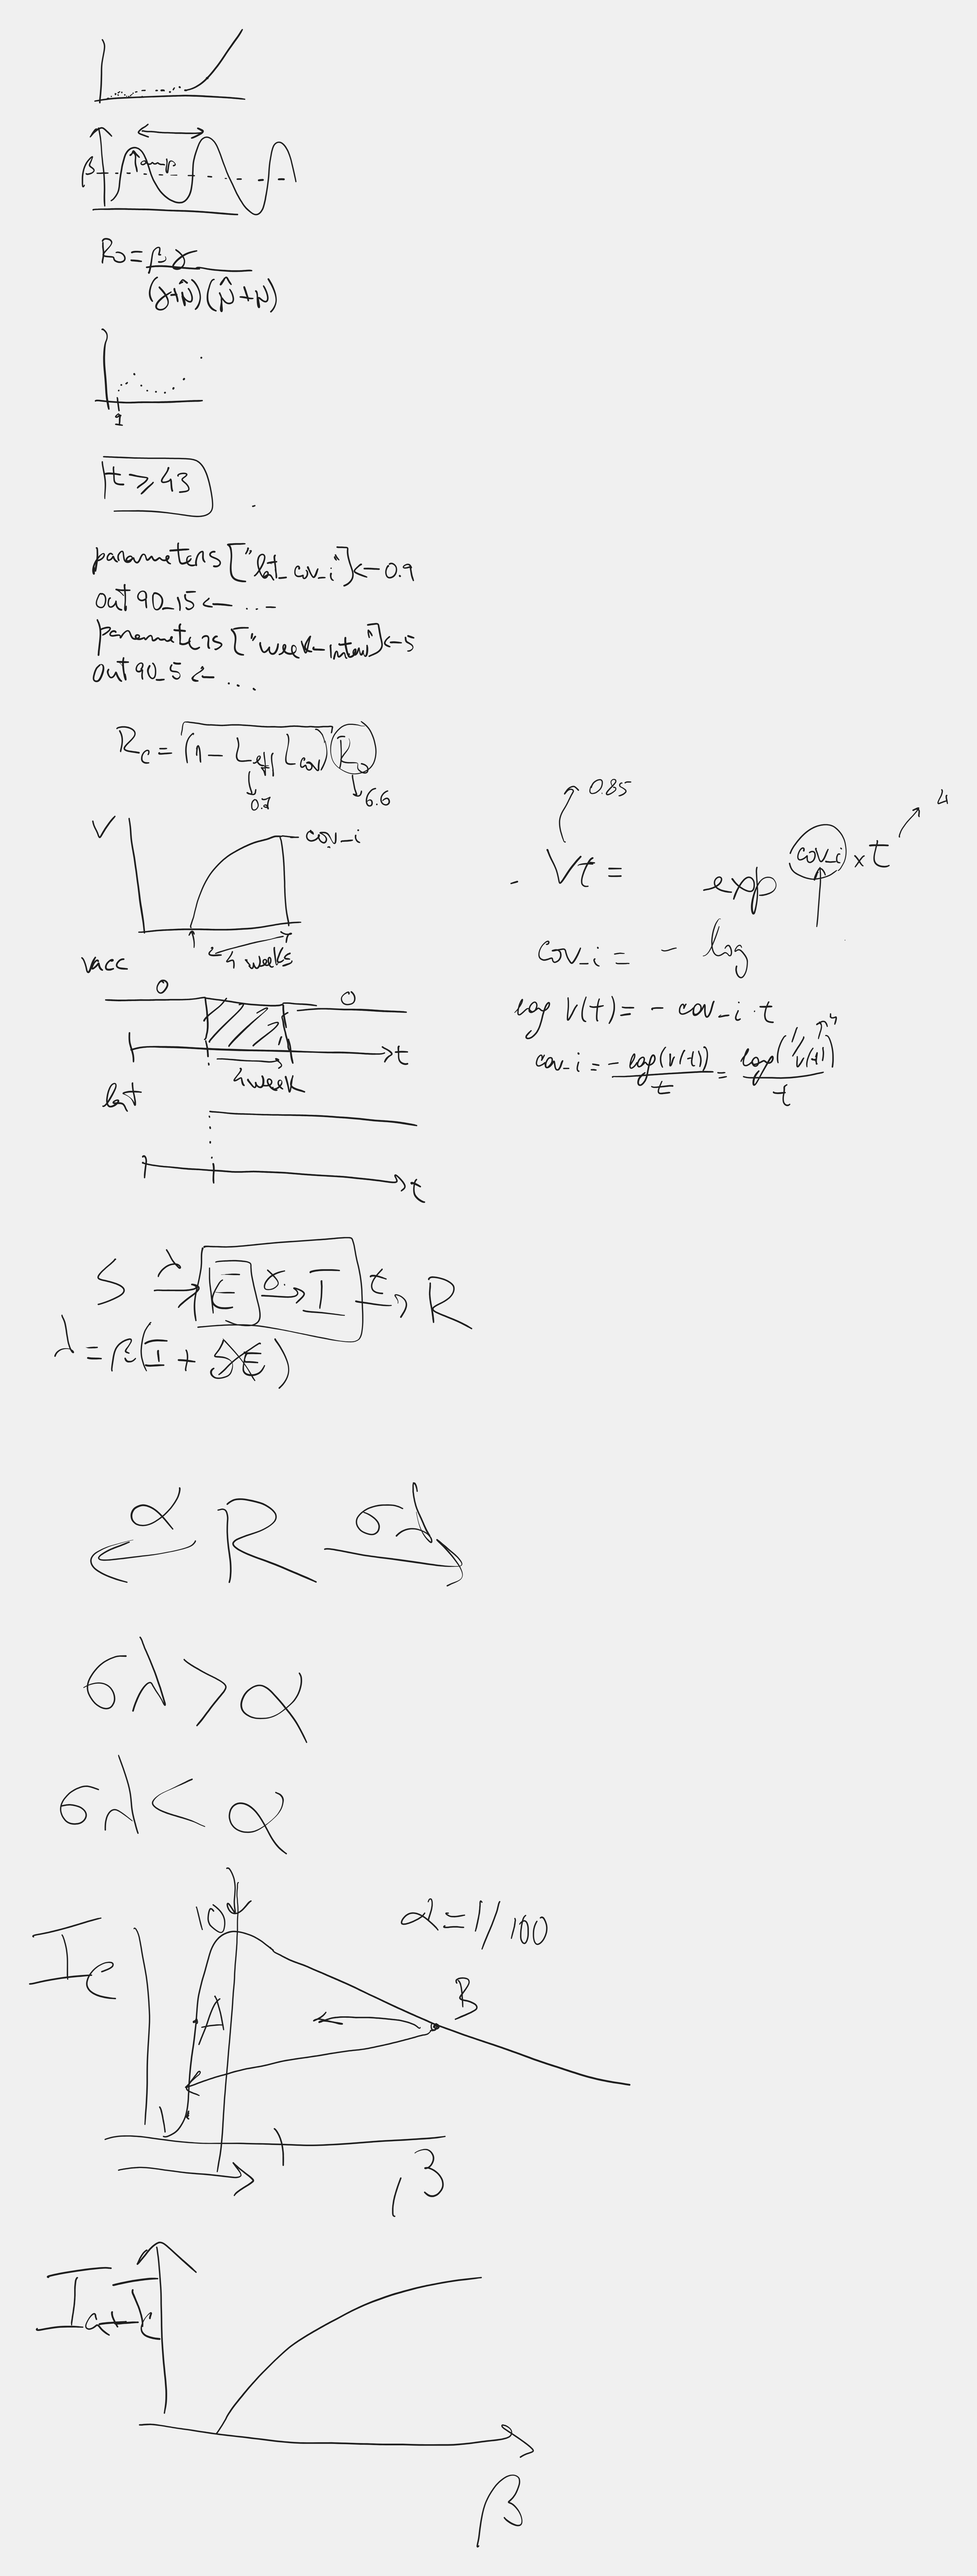 β amp
R₀ = βγ
(γ+μ̂)(μ̂+μ)
1
t ≥ 43
parameters ["lat_cov_i"] <- 0.9
out 90_15 <- ...
parameters ["week_interv"] <- 5
out 90_5 <- ...
Rc = (1 - Leff Lcov) R₀
0.7
6.6
V
cov_i
4 weeks
vacc
0 0
t
4 week
lat
t
0.85
4
Vt = exp cov_i × t
cov_i = - log
log V(t) = - cov_i · t
cov_i = -log(V(t))/t = log(1/V(t))/t
S λ E γ I τ R
λ = β(I + δE)
α R σλ
σλ > α
σλ < α
10
α = 1/100
Ic
A
B
1
β
Ia+Ic
β